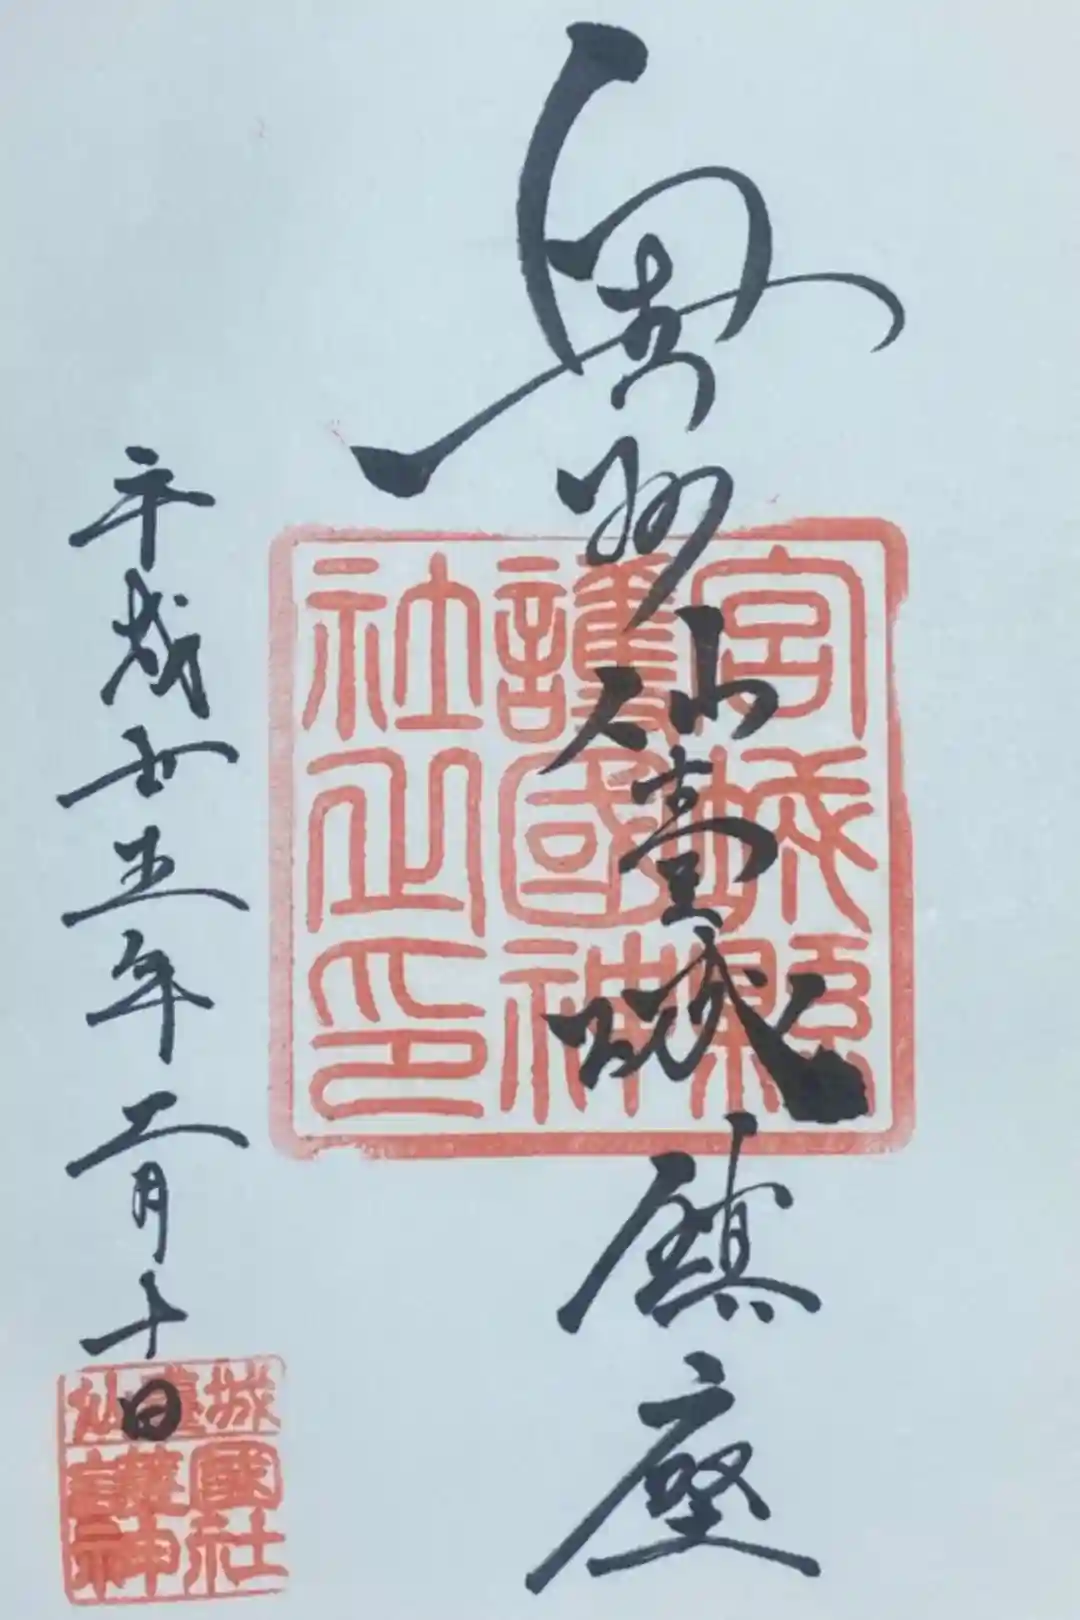 奥州仙臺城鎮座
宮城縣
護國神
社之印
平成廿五年二月十日
仙臺城
護國
神社